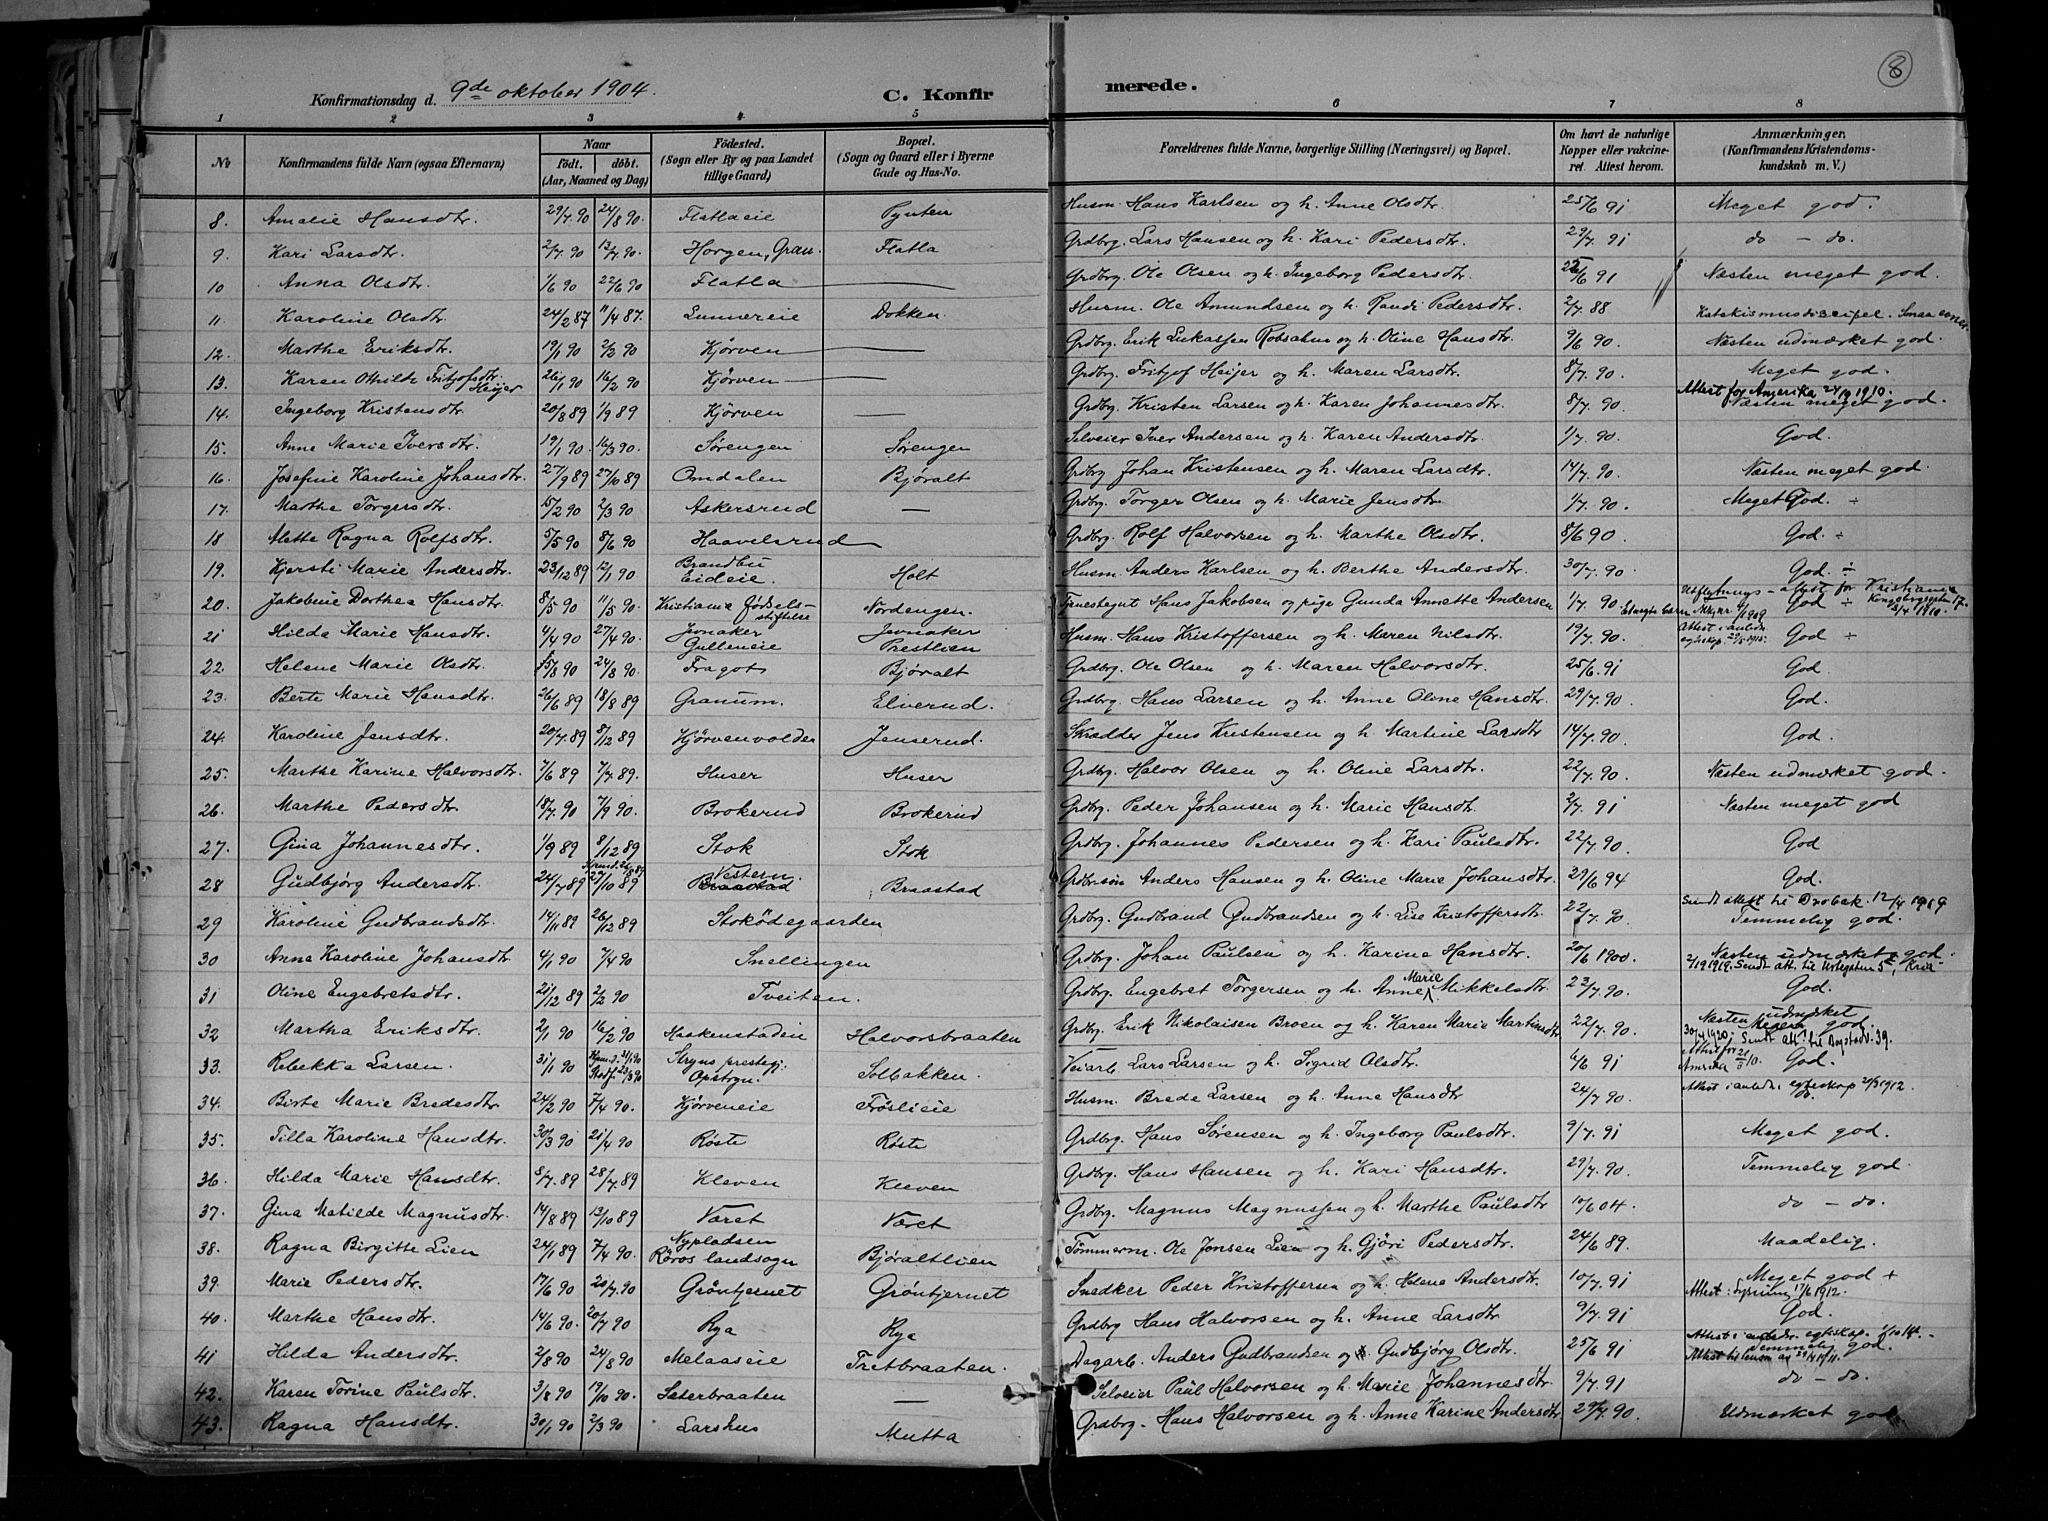 8
Konfirmationsdag d. 9de oktober 1904.
C. Konfirmerede.
1 2 3 4 5 6 7 8
No Konfirmandens fulde Navn (ogsaa Efternavn) Naar født. døbt. (Aar, Maaned og Dag) Fødested. (Sogn eller By og paa Landet tillige Gaard) Bopæl. (Sogn og Gaard eller i Byerne Gade og Hus-No. Forældrenes fulde Navne, borgerlige Stilling (Næringsvei) og Bopæl. Om havt de naturlige Kopper eller vakcineret. Attest herom. Anmærkninger. (Konfirmandens Kristendomskundskab m. V.)
8. Amalie Hansdtr. 29/7 90 24/8 90. Flatlaeie Pynten Husm. Hans Karlsen og h. Anne Olsdtr. 25/6 91 Meget god.
9. Kari Larsdtr. 2/7 90 13/7 90. Horgen, Gran. Flatla Grdbrg. Lars Hansen og h. Kari Pedersdtr. 29/7 91 do - do.
10 Anna Olsdtr. 1/6 90 22/6 90 Flatla — Grdbrg. Ole Olsen og h. Ingeborg Pedersdtr. 25/6 91 Næsten meget god.
11. Karoline Olsdtr. 24/2 87 11/4 87. Lunnereie Dokken. Husm. Ole Amundsen og h. Randi Pedersdtr. 2/7 88 Katekismusdiscipel. Smaa evner.
12. Marthe Eriksdtr. 19/1 90 2/2 90 Kjørven — Grdbrg. Erik Lukassen Robsahm og h. Oline Hansdtr. 9/6 90. Næsten udmærket god.
13. Karen Othilde Fritjofsdtr. Heijer 26/1 90 16/2 90 Kjørven — Grdbrg. Fritjof Heijer og h. Maren Larsdtr. 8/7 90. Meget god.
14. Ingeborg Kristensdtr. 20/8 89 1/9 89 Kjørven — Grdbrg. Kristen Larsen og h. Karen Johannesdtr. 8/7 90. Attest for Amerika 1910. Næsten meget god.
15. Anne Marie Iversdtr. 19/1 90 16/3 90. Sørengen Sørengen Selveier Iver Andersen og h. Karen Andersdtr. 1/7 90. God.
16. Josefine Karoline Johansdtr. 27/9 89 27/10 89 Omdalen Bjøralt Grdbrg. Johan Kristensen og h. Maren Larsdtr. 14/7 90. Næsten meget god.
17. Marthe Torgersdtr. 15/2 90 2/3 90 Askersrud — Grdbrg. Torger Olsen og h. Marie Jensdtr. 1/7 90. Meget God. ÷
18 Mette Ragna Rolfsdtr. 5/5 90 8/6 90 Haavelsrud — Grdbrg. Rolf Halvorsen og h. Marthe Olsdtr. 8/6 90 God. ÷
19. Kjersti Marie Andersdtr. 23/12 89 12/1 90 Brandbu Eideie. Holt Husm. Anders Karlsen og h. Berthe Andersdtr. 30/7 90. God. ÷
20. Jakobine Dorthea Hansdtr. 8/5 90 11/5 90. Kristiania fødselsstiftelse Nordengen. Tjenestegut Hans Jakobsen og pige Gunda Annette Andersen 1/7 90. Utflytnings-attest for Kristiania God ÷
21 Hilda Marie Hansdtr. 4/4 90 27/4 90 Jevnaker Gulleneie Jevnaker Prestlien Husm. Hans Kristoffersen og h. Maren Nilsdtr. 19/7 90. God ÷
22. Helene Marie Olsdtr. 5/8 90 24/8 90. Fragot Bjøralt Grdbrg. Ole Olsen og h. Maren Halvorsdtr. 25/6 91 God.
23. Berte Marie Hansdtr. 26/6 89 18/8 89 Granum. Elverud. Grdbrg. Hans Larsen og h. Anne Oline Hansdtr. 29/7 90. God.
24. Karoline Jensdtr. 20/7 89 8/12 89 Kjørvenvolden Jenserud. Skrædder Jens Kristensen og h. Martine Larsdtr 14/7 90. God.
25. Marthe Karine Halvorsdtr. 7/6 89 7/7 89. Huser Huser Grdbrg. Halvor Olsen og h. Oline Larsdtr. 22/7 90. Næsten udmærket god.
26. Marthe Pedersdtr. 18/7 90 7/9 90. Brokerud Brokerud Grdbrg. Peder Johansen og h. Marie Hansdtr. 2/7 91 Næsten meget god
27. Gina Johannesdtr. 1/9 89 8/12 89 Stok Stok Grdbrg. Johannes Pedersen og h. Kari Paulsdtr. 22/7 90. God
28 Gudbjørg Andersdtr. 24/7 89 27/10 89 Vestern. Braastad Braastad Grdbrsøn Anders Hansen og h. Oline Marie Johansdtr. 29/6 94 God.
29 Karoline Gudbrandsdtr. 14/11 89 26/12 89 Stokødegaarden Grdbrg. Gudbrand Gudbrandsen og h. Lise Kristoffersdtr. 22/7 90. Sendt attest til Drøbak. 12/4 1919 Temmelig god.
30 Anna Karoline Johansdtr. 4/1 90 7/4 90 Snellingen Grdbrg. Johan Paulsen og h. Karine Hansdtr. 20/6 1900 Næsten udmærket god.
31 Oline Engebretsdtr. 21/12 89 2/2 90 Tveiten. Grdbrg. Engebret Torgersen og h. Anne Marie Mikkelsdtr. 23/7 90. 2/1 1919. Sendt att. til Urtegaten 5, Kria God.
32 Martha Eriksdtr. 2/1 90 16/2 90 Haakenstadeie Halvorsbraaten Grdbrg. Erik Nikolaisen Broen og h. Karen Marie Martinsdtr. 22/7 90. Næsten udmærket god.
33. Rebekka Larsen. 31/1 90 Stryns prestegj. Opstryn. Solbakken. Veiarb. Lars Larsen og h. Sigrid Olsdtr. 6/6 91 30/4 1920. Sendt att. til Bogstadv. 39. Attest for Amerika God.
34. Birte Marie Bredesdtr. 24/2 90 7/4 90. Kjørveneie Frøslieie Husm. Brede Larsen og h. Anne Hansdtr 24/7 90. Attest i anled. egteskap 2/3 1912. do.
35. Tilla Karoline Hansdtr. 30/3 90 21/4 90 Røste Røste Grdbrg. Hans Sørensen og h. Ingeborg Paulsdtr. 9/7 91 Meget god.
36. Hilda Marie Hansdtr. 8/7 89 28/7 89 Kleven Kleven Grdbrg. Hans Hansen og h. Kari Hansdtr. 29/7 90. Temmelig god
37. Gina Matilde Magnusdtr. 14/8 89 13/10 89 Været Været Grdbrg. Magnus Magnussen og h. Marthe Paulsdtr 17/6 04. do - do.
38. Ragna Birgitte Lien 24/1 89 7/4 90. Nypladsen Røros landsogn Bjøraltlien Tømmerm. Ole Jonsen Lien og h. Gjøri Pedersdtr. 24/6 89. Maadelig.
39. Marie Pedersdtr. 17/6 90 20/7 90 Grøntjernet Grøntjernet Snedker Peder Kristoffersen og h. Helene Andersdtr. 10/7 91 Meget god +
40. Marthe Hansdtr. 14/6 90. 20/7 90 Rya Rya Grdbrg Hans Halvorsen og h. Anne Larsdtr. 9/7 91 God.
41 Hilda Andersdtr. 2/8 90 24/8 90 Melaaseie Tretbraaten. Dagarb. Anders Gudbrandsen og Gudbjørg Olsdtr. 25/6 91 Temmelig god.
42. Karen Torine Paulsdtr. 3/8 90 19/10 90. Seterbraaten — Selveier Paul Halvorsen og h. Marie Johannesdtr. 9/7 91 do - do.
43. Ragna Hansdtr. 30/1 90 2/3 90 Larshus Mutta Grdbrg. Hans Halvorsen og h. Anne Karine Andersdtr 29/7 90. Udmærket god.